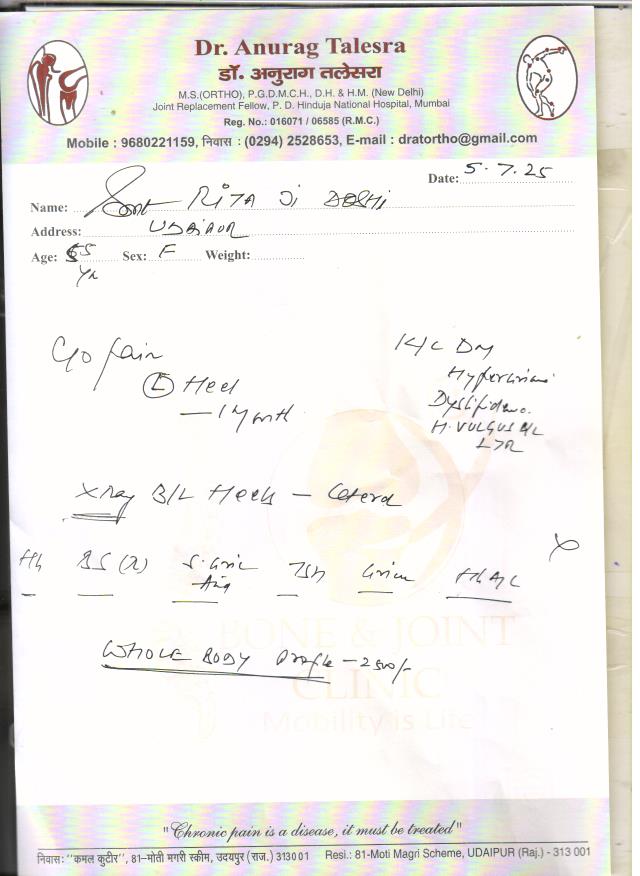 Dr. Anurag Talesra
डॉ. अनुराग तलेसरा
M.S.(ORTHO), P.G.D.M.C.H., D.H. & H.M. (New Delhi)
Joint Replacement Fellow, P. D. Hinduja National Hospital, Mumbai
Reg. No.: 016071 / 06585 (R.M.C.)
Mobile : 9680221159, निवास : (0294) 2528653, E-mail : dratortho@gmail.com
Date: 5.7.25
Name: Smt RITA JI DOSHI
Address: UDAIPUR
Age: 65 Sex: F Weight:
Yr
C/o Pain
K/C DM
(L) Heel
— 1 Month
H. VULGUS B/L
L>R
Xray B/L Heels – Lateral
Hb BS (R) S. Uric Acid TSH HbA1C
WHOLE BODY Profile – 2500/-
BONE & JOINT
CLINIC
Mobility is Life
"Chronic pain is a disease, it must be treated"
निवास: "कमल कुटीर", 81-मोती मगरी स्कीम, उदयपुर (राज.) 313001 Resi.: 81-Moti Magri Scheme, UDAIPUR (Raj.) - 313 001